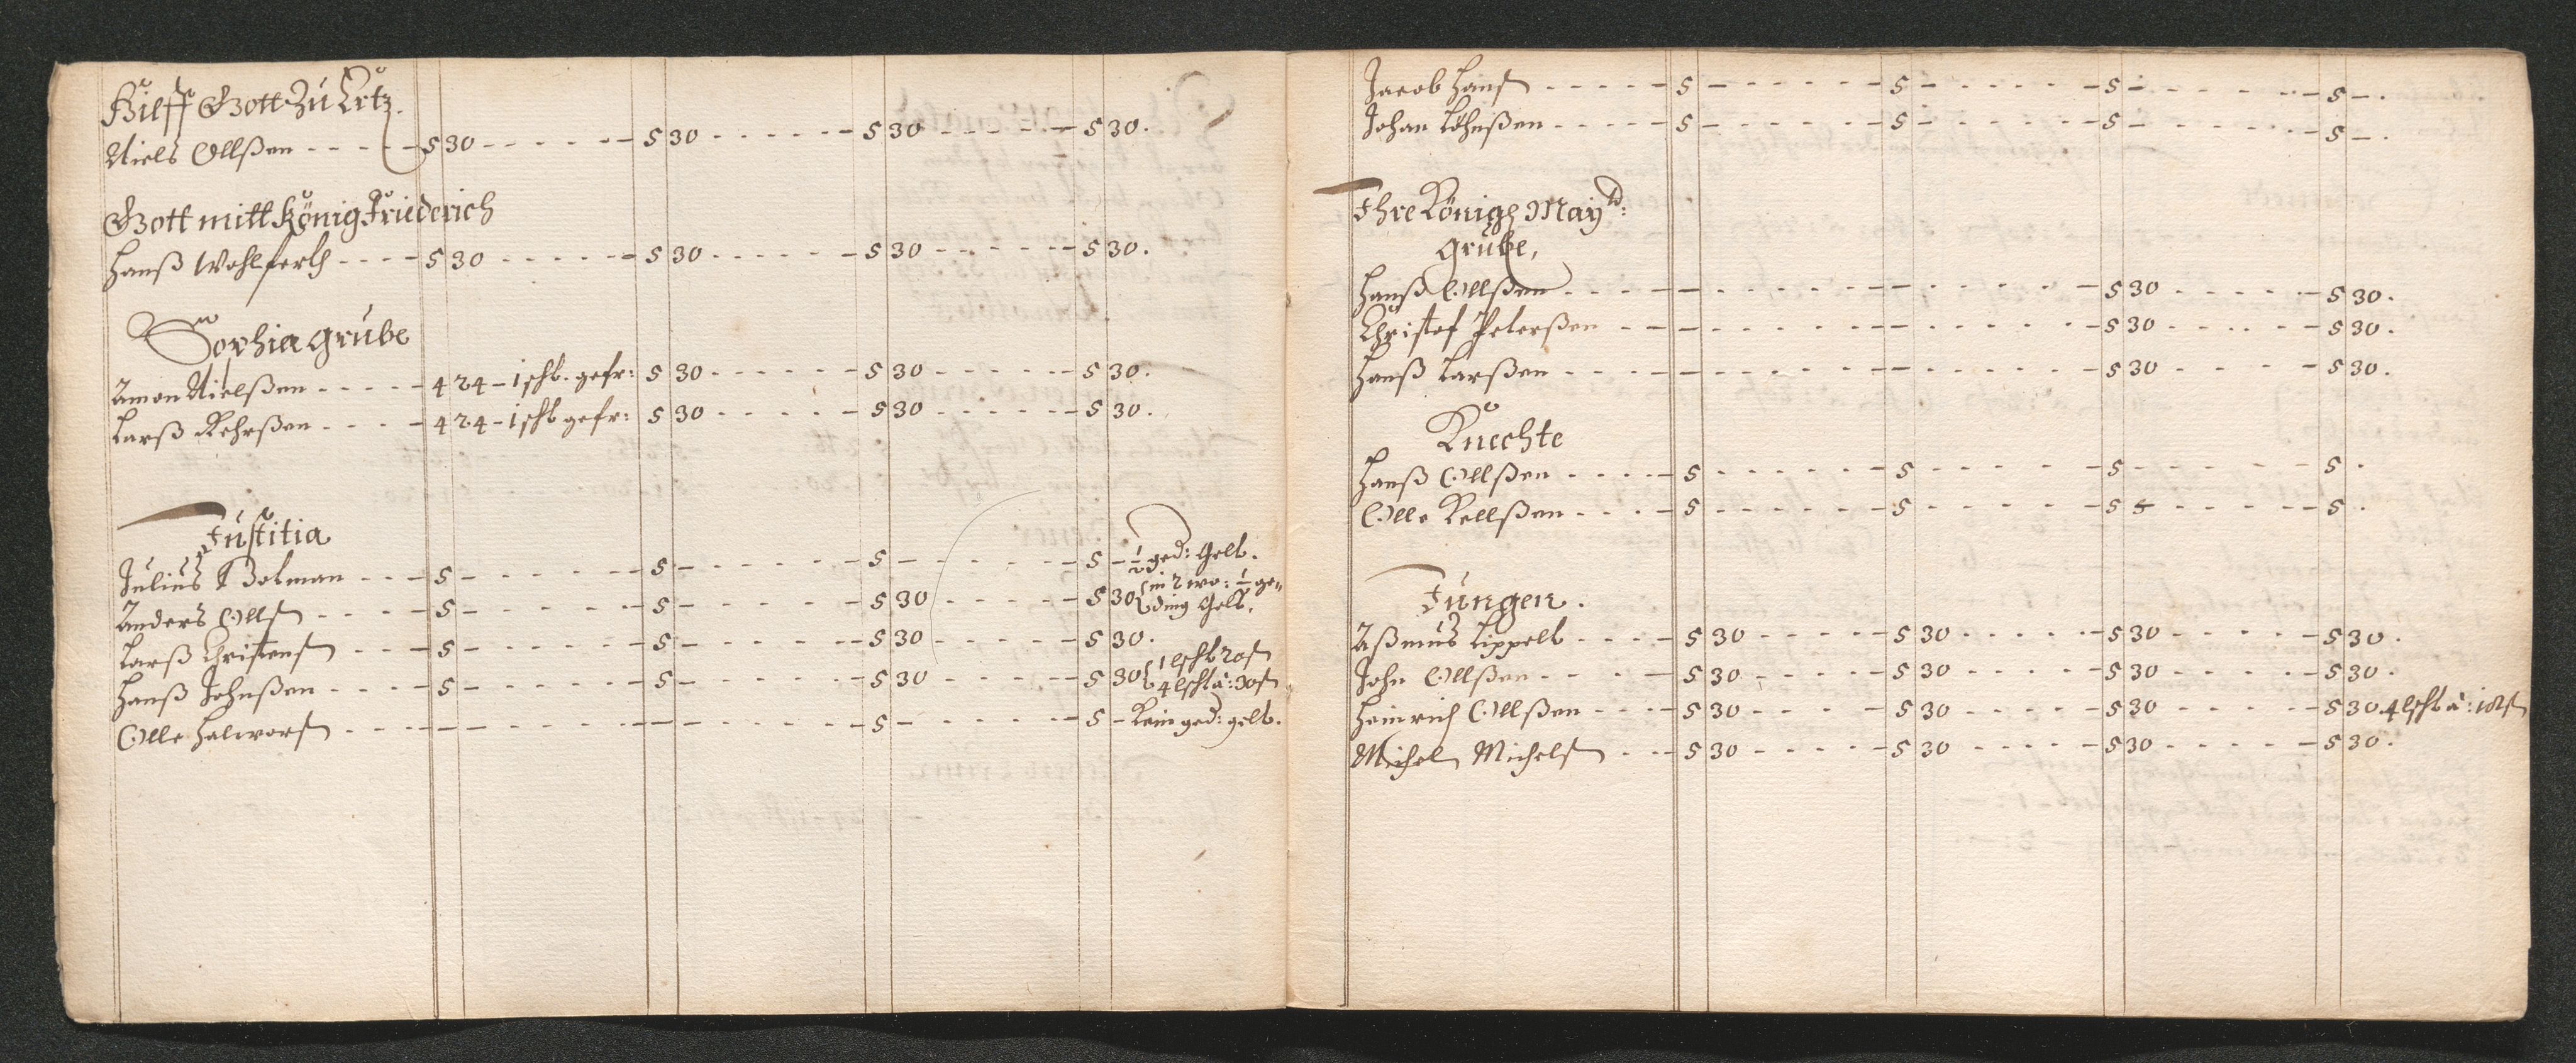 Hilff Gott Zu Ertz.
Niels Ollßen - - - - - 5 30 - - - - - - 5 30 - - - - - - 5 30 - - - - - 5 30.
Gott mitt König Friederich
Hanß Wohlferth - - - - 5 30 - - - - - - 5 30 - - - - - - 5 30 - - - - - 5 30.
Sophia Grube
Amon Nielßen - - - - - 4 24 - 1 schb. gefr: 5 30 - - - - - - 5 30 - - - - - 5 30.
Larß Kehrßen - - - - 4 24 - 1 schb gefr: 5 30 - - - - - - 5 30 - - - - - - 5 30.
Justitia
Julius Bolman - - - 5 - - - - - - - 5 - - - - - - - 5 - - - - - - 5 - ½ ged: Gelt.
Anders Ollß - - - - 5 - - - - - - - 5 - - - - - - 5 30 - - - - - 5 30 in 2 wo: ½ ge„
ding Gelt.
Larß Christenß - - - 5 - - - - - - - 5 - - - - - - 5 30 - - - - - 5 30.
Hanß Johnßen - - - - 5 - - - - - - - 5 - - - - - - 5 30 - - - - - 5 30 1 lscht 20 ß
4 lscht à: 30 ß
Olle Halworß - - - - - - - - - - - - - - - - - - 5 - - - - - - 5 - Kein ged: gelt.
Jacob Hanß - - - - - 5 - - - - - - 5 - - - - - 5 - - - - - - 5 -.
Johan Löhnßen - - - - 5 - - - - - - 5 - - - - - 5 - - - - - - 5 -.
Ihre Königl Maytt:
Grube,
Hanß Ollßen - - - - - - - - - - - - - - - - - 5 30 - - - - - 5 30.
Christof Peterßen - - - - - - - - - - - - - - - 5 30 - - - - - 5 30.
Hanß Larßen - - - - - - - - - - - - - - - - - 5 30 - - - - 5 30.
Knechte
Hanß Ollßen - - - - - 5 - - - - - - 5 - - - - - 5 - - - - - - 5.
Olle Kellßen - - - - 5 - - - - - - 5 - - - - - 5 - - - - - - 5.
Jungen.
Aßmus Lippelt - - - - 5 30 - - - - - 5 30 - - - - - 5 30 - - - - - 5 30.
John Ollßen - - - - - 5 30 - - - - - 5 30 - - - - - 5 30 - - - - - 5 30.
Heinrich Ollßen - - - - 5 30 - - - - - 5 30 - - - - - 5 30 - - - - - 5 30 4 lscht à: 18 ß
Michel Michelß - - - 5 30 - - - - - 5 30 - - - - - 5 30 - - - - - 5 30.